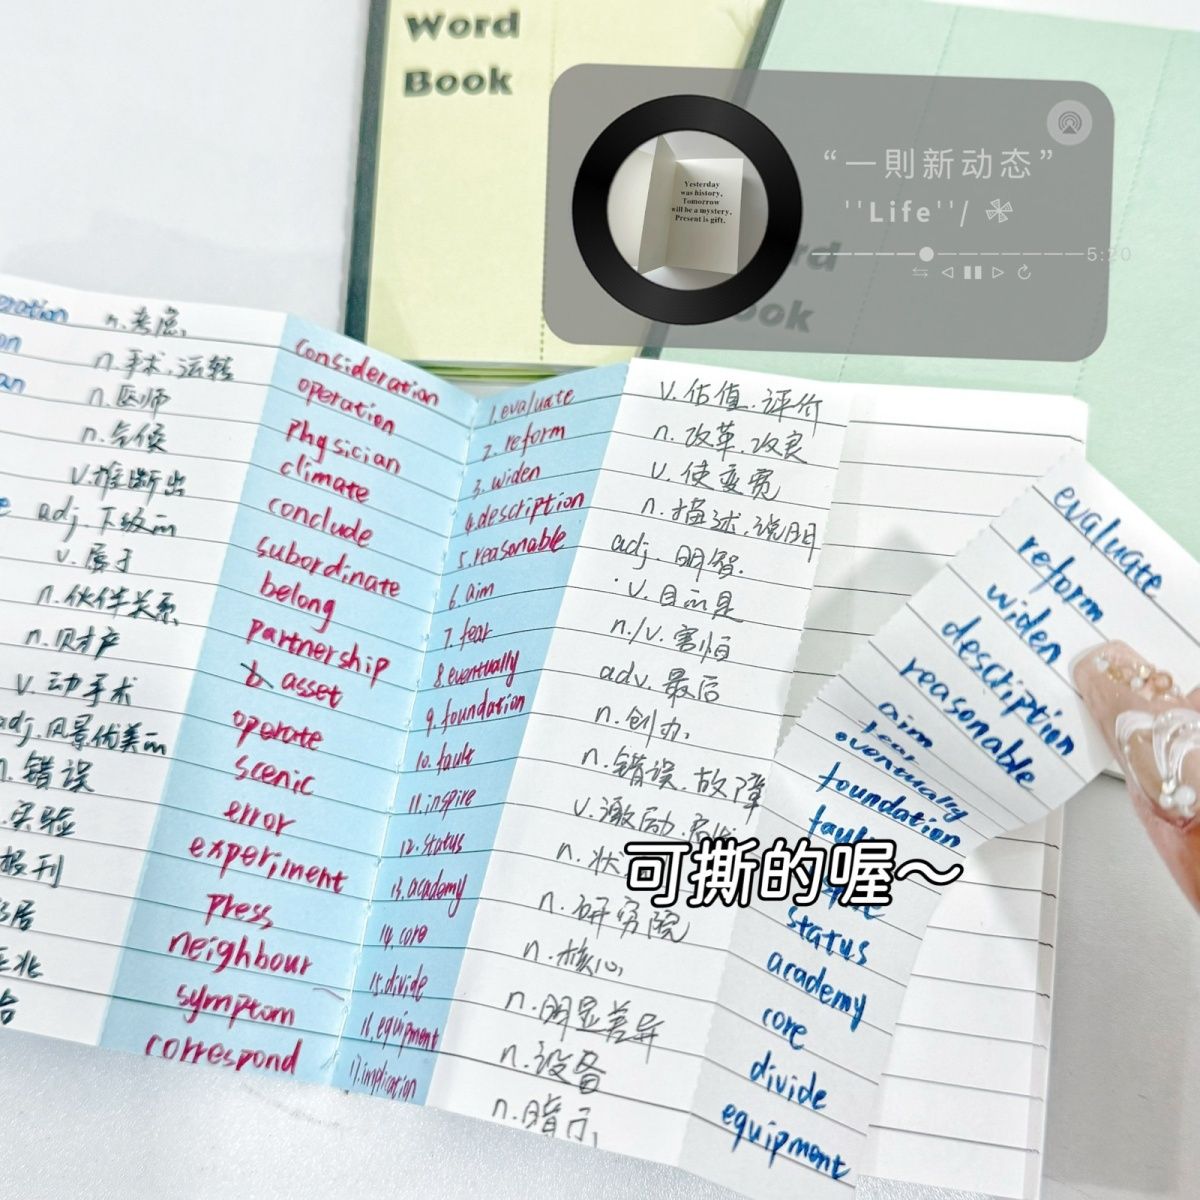 Word
Book
“一則新动态”
''Life''/
5:20
Yesterday
was history,
Tomorrow
will be a mystery,
Present is gift.
ook
n.考虑
n.手术.运转
n.医师
n.气候
v.推断出
adj.下级的
v.属于
n.伙伴关系
n.财产
v.动手术
adj.风景优美的
n.错误
实验
报刊
consideration
operation
physician
climate
conclude
subordinate
belong
partnership
asset
operate
scenic
error
experiment
press
neighbour
symptom
correspond
1.evaluate
2.reform
3.widen
4.description
5.reasonable
6.aim
7.fear
8.eventually
9.foundation
10.fault
11.inspire
12.status
13.academy
14.core
15.divide
16.equipment
17.implication
v.估值.评价
n.改革.改良
v.使变宽
n.描述.说明
adj.明智.
v.目的是
n./v.害怕
adv.最后
n.创办
n.错误.故障
v.激励
n.状
n.研究院
n.核心
n.明显差异
n.设备
n.暗示
evaluate
reform
widen
description
reasonable
aim
fear
eventually
foundation
fault
status
academy
core
divide
equipment
可撕的喔～